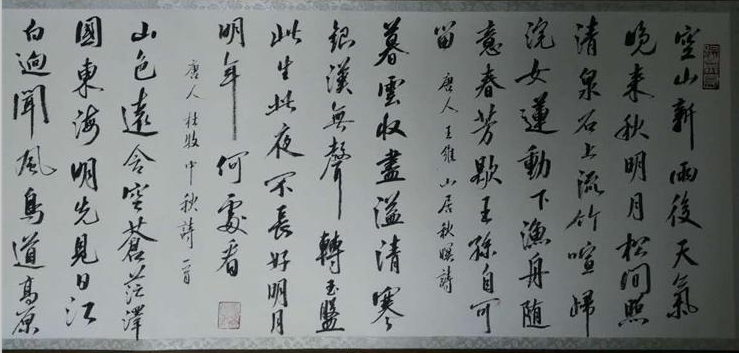 空山新雨後天氣
晚来秋明月松间照
清泉石上流竹喧歸
浣女蓮動下漁舟随
意春芳歇王孫自可
留 唐人王維山居秋暝詩
暮雲收盡溢清寒
銀漢無聲轉玉盤
此生此夜不長好明月
明年何處看
唐人杜牧中秋詩一首
山色遠含空蒼茫澤
國東海明先見日江
白迥聞風鳥道高原